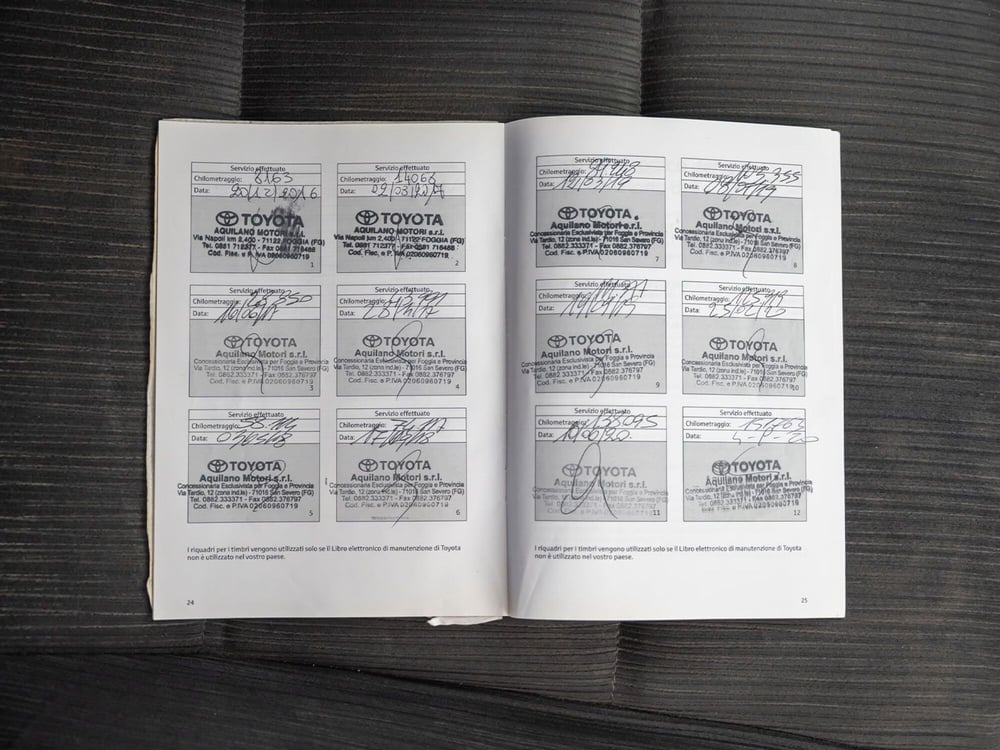 Servizio effettuato
Chilometraggio: 8163
Data: 20/12/2016
TOYOTA
AQUILANO MOTORI s.r.l.
Via Napoli km 2,400 - 71122 FOGGIA (FG)
Tel. 0881 712377 - Fax 0881 716488
Cod. Fisc. e P. IVA 02060960719
1
Servizio effettuato
Chilometraggio: 14066
Data: 02/03/2017
TOYOTA
AQUILANO MOTORI s.r.l.
Via Napoli km 2,400 - 71122 FOGGIA (FG)
Tel. 0881 712377 - Fax 0881 716488
Cod. Fisc. e P. IVA 02060960719
2
Servizio effettuato
Chilometraggio:
Data:
TOYOTA
Aquilano Motori s.r.l.
Concessionaria Esclusivista per Foggia e Provincia
Via Tardio, 12 (zona ind.le) - 71016 San Severo (FG)
Tel. 0882.333371 - Fax 0882.376797
Cod. Fisc. e P.IVA 02060960719
3
Servizio effettuato
Chilometraggio:
Data:
TOYOTA
Aquilano Motori s.r.l.
Concessionaria Esclusivista per Foggia e Provincia
Via Tardio, 12 (zona ind.le) - 71016 San Severo (FG)
Tel. 0882.333371 - Fax 0882.376797
Cod. Fisc. e P.IVA 02060960719
4
Servizio effettuato
Chilometraggio:
Data:
TOYOTA
Aquilano Motori s.r.l.
Concessionaria Esclusivista per Foggia e Provincia
Via Tardio, 12 (zona ind.le) - 71016 San Severo (FG)
Tel. 0882.333371 - Fax 0882.376797
Cod. Fisc. e P.IVA 02060960719
5
Servizio effettuato
Chilometraggio:
Data:
TOYOTA
Aquilano Motori s.r.l.
Concessionaria Esclusivista per Foggia e Provincia
Via Tardio, 12 (zona ind.le) - 71016 San Severo (FG)
Tel. 0882.333371 - Fax 0882.376797
Cod. Fisc. e P.IVA 02060960719
6
I riquadri per i timbri vengono utilizzati solo se il Libro elettronico di manutenzione di Toyota
non è utilizzato nel vostro paese.
24
Servizio effettuato
Chilometraggio:
Data: 12/03/19
TOYOTA
Aquilano Motori s.r.l.
Concessionaria Esclusivista per Foggia e Provincia
Via Tardio, 12 (zona ind.le) - 71016 San Severo (FG)
Tel. 0882.333371 - Fax 0882.376797
Cod. Fisc. e P.IVA 02060960719
7
Servizio effettuato
Chilometraggio: 103.355
Data:
TOYOTA
Aquilano Motori s.r.l.
Concessionaria Esclusivista per Foggia e Provincia
Via Tardio, 12 (zona ind.le) - 71016 San Severo (FG)
Tel. 0882.333371 - Fax 0882.376797
Cod. Fisc. e P.IVA 02060960719
8
Servizio effettuato
Chilometraggio:
Data:
TOYOTA
Aquilano Motori s.r.l.
Concessionaria Esclusivista per Foggia e Provincia
Via Tardio, 12 (zona ind.le) - 71016 San Severo (FG)
Tel. 0882.333371 - Fax 0882.376797
Cod. Fisc. e P.IVA 02060960719
9
Servizio effettuato
Chilometraggio:
Data: 25/02/20
TOYOTA
Aquilano Motori s.r.l.
Concessionaria Esclusivista per Foggia e Provincia
Via Tardio, 12 (zona ind.le) - 71016 San Severo (FG)
Tel. 0882.333371 - Fax 0882.376797
Cod. Fisc. e P.IVA 02060960719
10
Servizio effettuato
Chilometraggio: 138095
Data:
TOYOTA
Aquilano Motori s.r.l.
Concessionaria Esclusivista per Foggia e Provincia
Via Tardio, 12 (zona ind.le) - 71016 San Severo (FG)
Tel. 0882.333371 - Fax 0882.376797
Cod. Fisc. e P.IVA 02060960719
11
Servizio effettuato
Chilometraggio:
Data:
TOYOTA
Aquilano Motori s.r.l.
12
I riquadri per i timbri vengono utilizzati solo se il Libro elettronico di manutenzione di Toyota
non è utilizzato nel vostro paese.
25